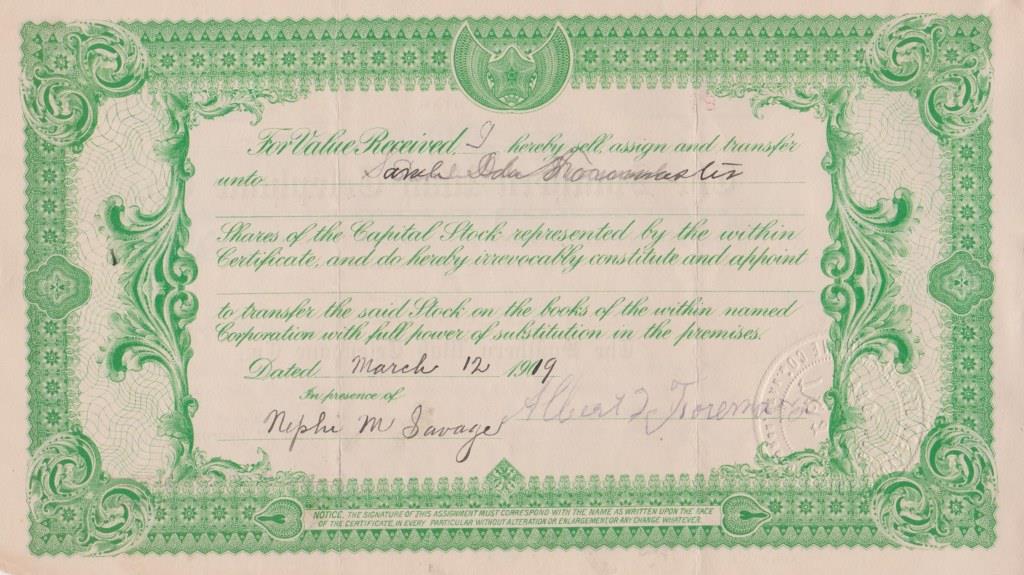 For Value Received, I hereby sell, assign and transfer
unto Ida
Shares of the Capital Stock represented by the within
Certificate, and do hereby irrevocably constitute and appoint
to transfer the said Stock on the books of the within named
Corporation with full power of substitution in the premises.
Dated March 12 1919
In presence of
Nephi M Savage
Albert
NOTICE, THE SIGNATURE OF THIS ASSIGNMENT MUST CORRESPOND WITH THE NAME AS WRITTEN UPON THE FACE
OF THE CERTIFICATE, IN EVERY PARTICULAR WITHOUT ALTERATION OR ENLARGEMENT OR ANY CHANGE WHATEVER.